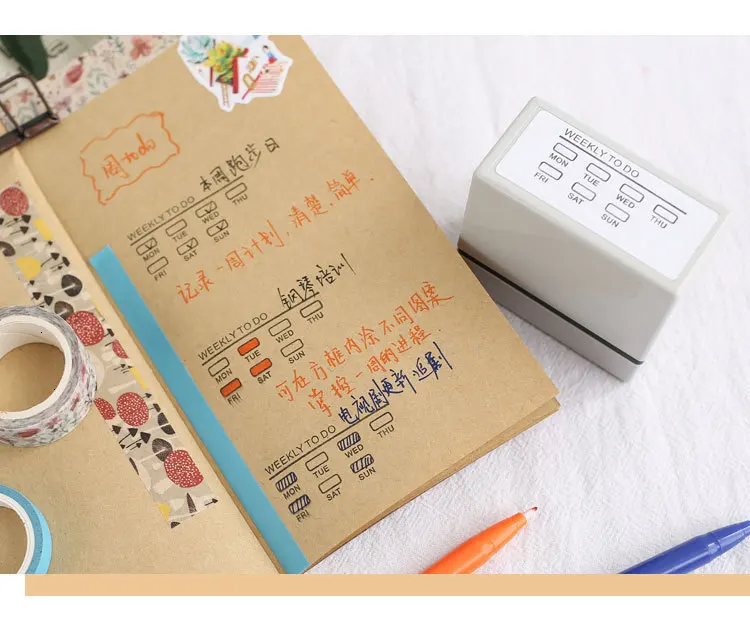 周 to do
本周跑步日
WEEKLY TO DO
MON TUE WED THU
FRI SAT SUN
记录一周计划,清楚,简单.
钢琴培训
WEEKLY TO DO
MON TUE WED THU
FRI SAT SUN
可在方框内涂不同图案
掌控一周的进程.
电视剧更新追剧
WEEKLY TO DO
MON TUE WED THU
FRI SAT SUN
WEEKLY TO DO
MON TUE WED THU
FRI SAT SUN